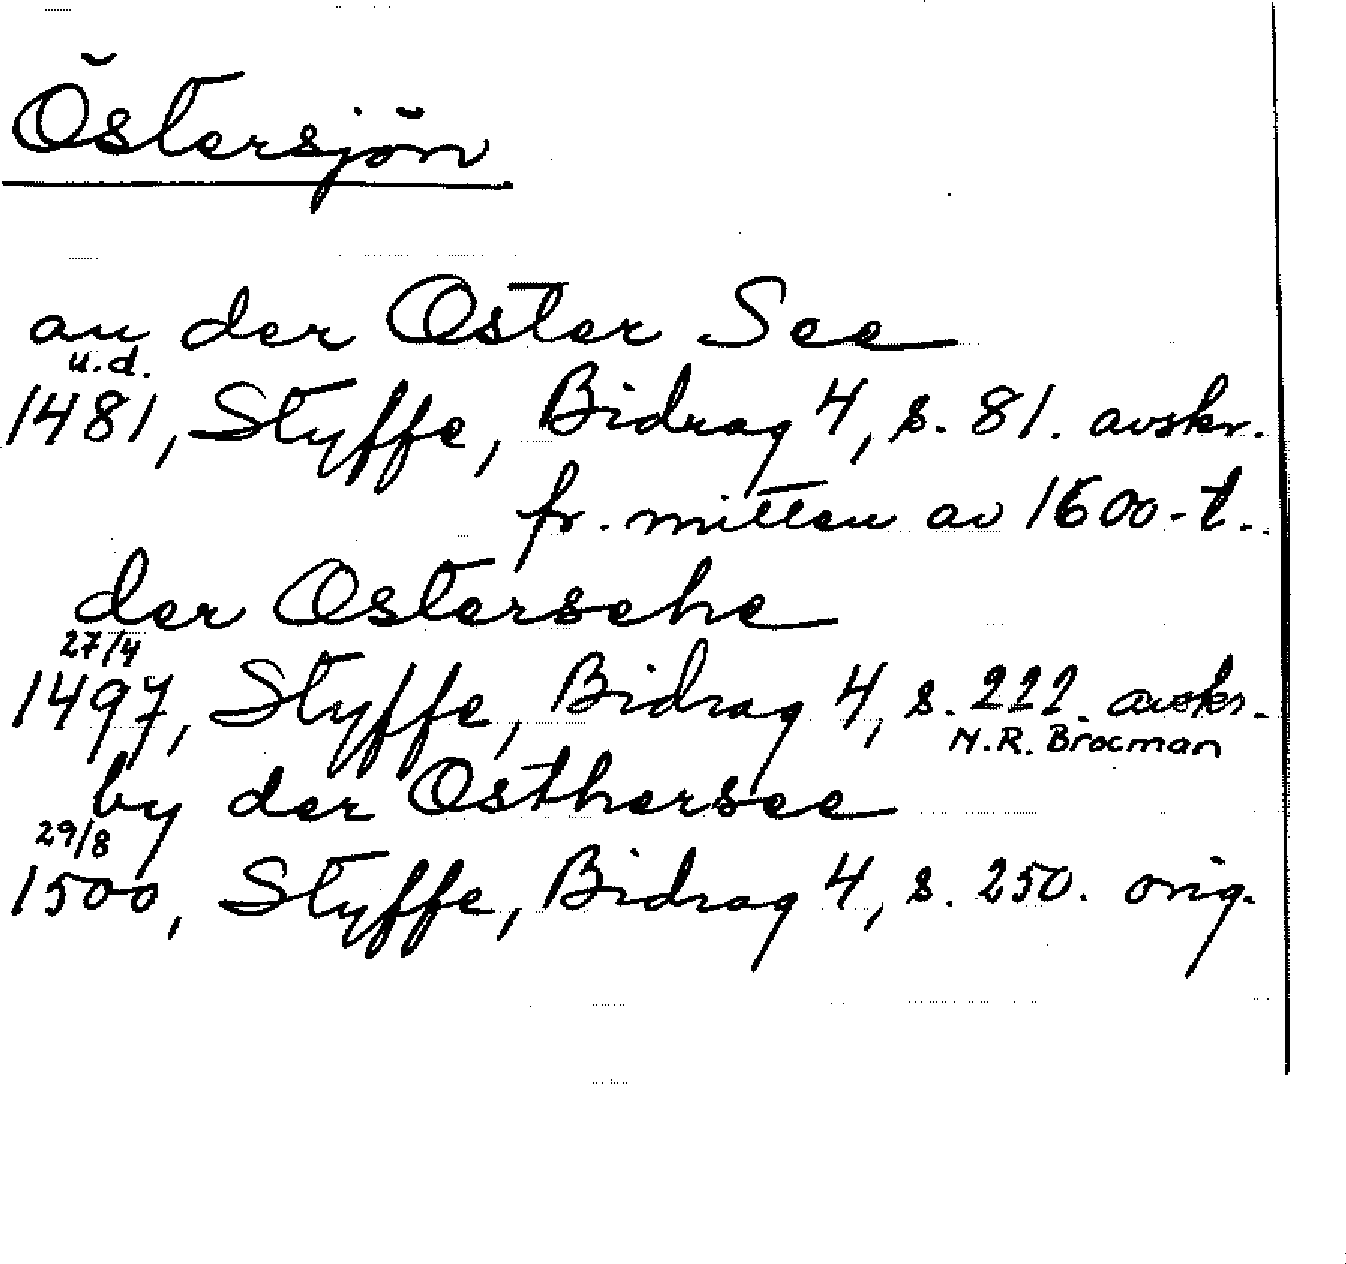 Östersjön
an der Oster See
u.d.
1481, Styffe, Bidrag 4, s. 81. avskr.
fr. mitten av 1600-t.
der Ostersehe
27/4
1497, Styffe, Bidrag 4, s. 222. avskr.
N.R. Brocman
by der Osthersee
29/8
1500, Styffe, Bidrag 4, s. 250. orig.